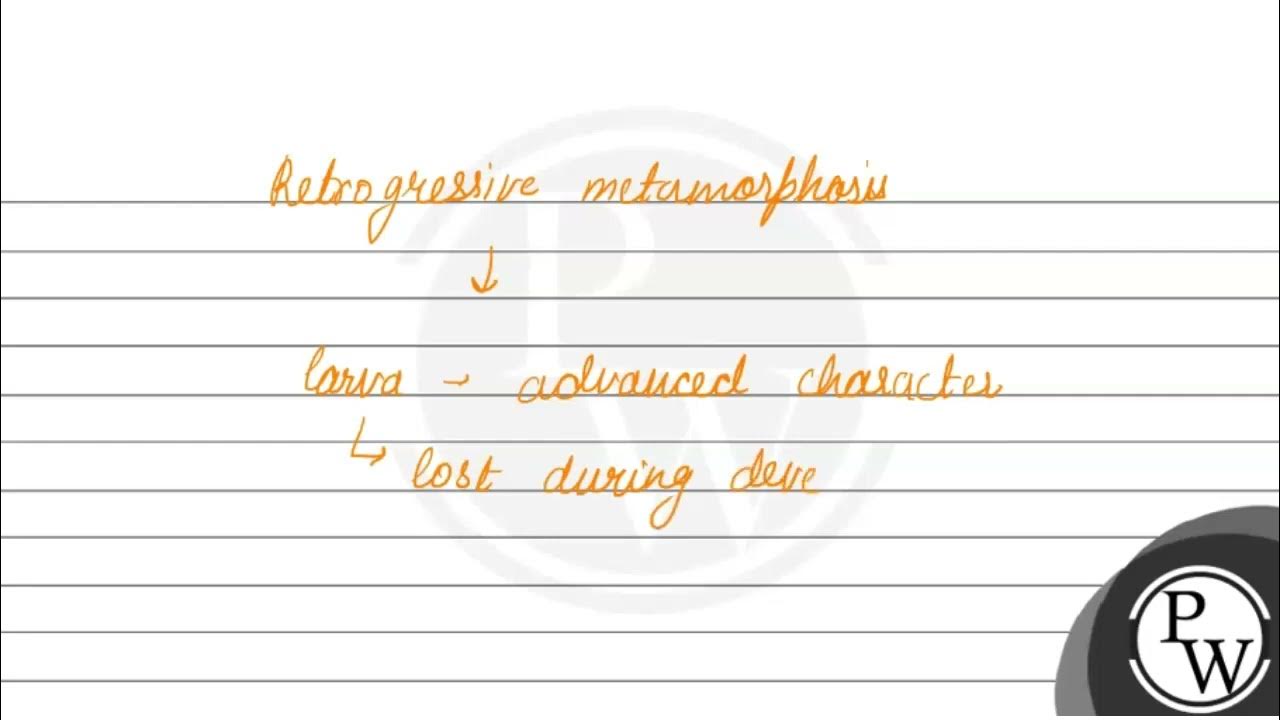 Retrogressive metamorphosis
↓
larva - advanced character
↳ lost during deve
PW
PW